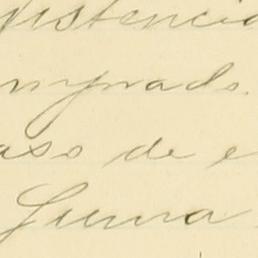 istencia
mprado.
aso de e
Suma